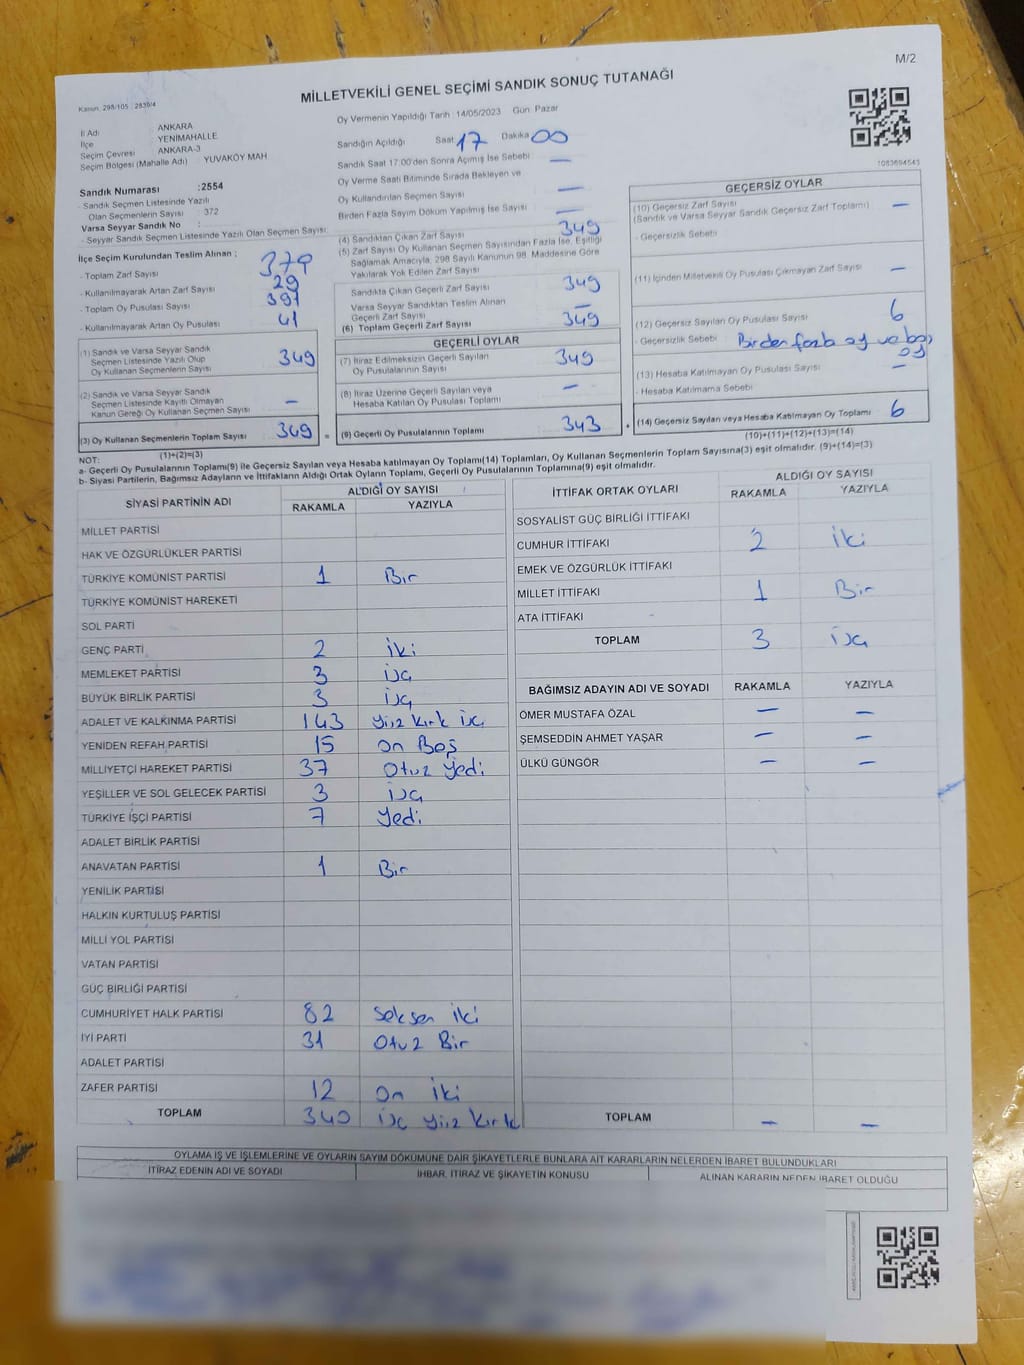 M/2
MİLLETVEKİLİ GENEL SEÇİMİ SANDIK SONUÇ TUTANAĞI
Kanun: 298/105 : 2839/4
İl Adı ANKARA
İlçe YENİMAHALLE
Seçim Çevresi ANKARA-3
Seçim Bölgesi (Mahalle Adı) YUVAKÖY MAH
Sandık Numarası :2554
- Sandık Seçmen Listesinde Yazılı
Olan Seçmenlerin Sayısı : 372
Varsa Seyyar Sandık No :
- Seyyar Sandık Seçmen Listesinde Yazılı Olan Seçmen Sayısı:
İlçe Seçim Kurulundan Teslim Alınan ;
- Toplam Zarf Sayısı 379
- Kullanılmayarak Artan Zarf Sayısı 29
- Toplam Oy Pusulası Sayısı 391
- Kullanılmayarak Artan Oy Pusulası 41
(1) Sandık ve Varsa Seyyar Sandık
Seçmen Listesinde Yazılı Olup
Oy Kullanan Seçmenlerin Sayısı 349
(2) Sandık ve Varsa Seyyar Sandık
Seçmen Listesinde Kayıtlı Olmayan
Kanun Gereği Oy Kullanan Seçmen Sayısı –
(3) Oy Kullanan Seçmenlerin Toplam Sayısı 349 =
(1)+(2)=(3)
Oy Vermenin Yapıldığı Tarih : 14/05/2023 Gün: Pazar
Sandığın Açıldığı Saat 17 Dakika 00
Sandık Saat 17:00'den Sonra Açılmış İse Sebebi –
Oy Verme Saati Bitiminde Sırada Bekleyen ve
Oy Kullandırılan Seçmen Sayısı –
Birden Fazla Sayım Döküm Yapılmış İse Sayısı –
(4) Sandıktan Çıkan Zarf Sayısı 349
(5) Zarf Sayısı Oy Kullanan Seçmen Sayısından Fazla İse, Eşitliği
Sağlamak Amacıyla, 298 Sayılı Kanunun 98. Maddesine Göre
Yakılarak Yok Edilen Zarf Sayısı
Sandıkta Çıkan Geçerli Zarf Sayısı 349
Varsa Seyyar Sandıktan Teslim Alınan
Geçerli Zarf Sayısı –
(6) Toplam Geçerli Zarf Sayısı 349
GEÇERLİ OYLAR
(7) İtiraz Edilmeksizin Geçerli Sayılan
Oy Pusulalarının Sayısı 349
(8) İtiraz Üzerine Geçerli Sayılan veya
Hesaba Katılan Oy Pusulası Toplamı –
(9) Geçerli Oy Pusulalarının Toplamı 343 +
1083694543
GEÇERSİZ OYLAR
(10) Geçersiz Zarf Sayısı
(Sandık ve Varsa Seyyar Sandık Geçersiz Zarf Toplamı) –
- Geçersizlik Sebebi
(11) İçinden Milletvekili Oy Pusulası Çıkmayan Zarf Sayısı –
(12) Geçersiz Sayılan Oy Pusulası Sayısı 6
- Geçersizlik Sebebi Birden fazla oy ve boş
oy
(13) Hesaba Katılmayan Oy Pusulası Sayısı –
- Hesaba Katılmama Sebebi
(14) Geçersiz Sayılan veya Hesaba Katılmayan Oy Toplamı 6
(10)+(11)+(12)+(13)=(14)
NOT:
a- Geçerli Oy Pusulalarının Toplamı(9) ile Geçersiz Sayılan veya Hesaba katılmayan Oy Toplamı(14) Toplamları, Oy Kullanan Seçmenlerin Toplam Sayısına(3) eşit olmalıdır. (9)+(14)=(3)
b- Siyasi Partilerin, Bağımsız Adayların ve İttifakların Aldığı Ortak Oyların Toplamı, Geçerli Oy Pusulalarının Toplamına(9) eşit olmalıdır.
SİYASİ PARTİNİN ADI ALDIĞI OY SAYISI
RAKAMLA YAZIYLA
MİLLET PARTİSİ
HAK VE ÖZGÜRLÜKLER PARTİSİ
TÜRKİYE KOMÜNİST PARTİSİ 1 Bir
TÜRKİYE KOMÜNİST HAREKETİ
SOL PARTİ
GENÇ PARTİ 2 iki
MEMLEKET PARTİSİ 3 üç
BÜYÜK BİRLİK PARTİSİ 3 üç
ADALET VE KALKINMA PARTİSİ 143 yüz kırk üç
YENİDEN REFAH PARTİSİ 15 on Beş
MİLLİYETÇİ HAREKET PARTİSİ 37 Otuz Yedi
YEŞİLLER VE SOL GELECEK PARTİSİ 3 üç
TÜRKİYE İŞÇİ PARTİSİ 7 Yedi
ADALET BİRLİK PARTİSİ
ANAVATAN PARTİSİ 1 Bir
YENİLİK PARTİSİ
HALKIN KURTULUŞ PARTİSİ
MİLLİ YOL PARTİSİ
VATAN PARTİSİ
GÜÇ BİRLİĞİ PARTİSİ
CUMHURİYET HALK PARTİSİ 82 Seksen iki
İYİ PARTİ 31 Otuz Bir
ADALET PARTİSİ
ZAFER PARTİSİ 12 on iki
TOPLAM 340 üç yüz kırk
İTTİFAK ORTAK OYLARI ALDIĞI OY SAYISI
RAKAMLA YAZIYLA
SOSYALİST GÜÇ BİRLİĞİ İTTİFAKI
CUMHUR İTTİFAKI 2 iki
EMEK VE ÖZGÜRLÜK İTTİFAKI
MİLLET İTTİFAKI 1 Bir
ATA İTTİFAKI
TOPLAM 3 üç
BAĞIMSIZ ADAYIN ADI VE SOYADI RAKAMLA YAZIYLA
ÖMER MUSTAFA ÖZAL – –
ŞEMSEDDİN AHMET YAŞAR – –
ÜLKÜ GÜNGÖR – –
TOPLAM – –
OYLAMA İŞ VE İŞLEMLERİNE VE OYLARIN SAYIM DÖKÜMÜNE DAİR ŞİKAYETLERLE BUNLARA AİT KARARLARIN NELERDEN İBARET BULUNDUKLARI
İTİRAZ EDENİN ADI VE SOYADI İHBAR, İTİRAZ VE ŞİKAYETİN KONUSU ALINAN KARARIN NEDEN İBARET OLDUĞU